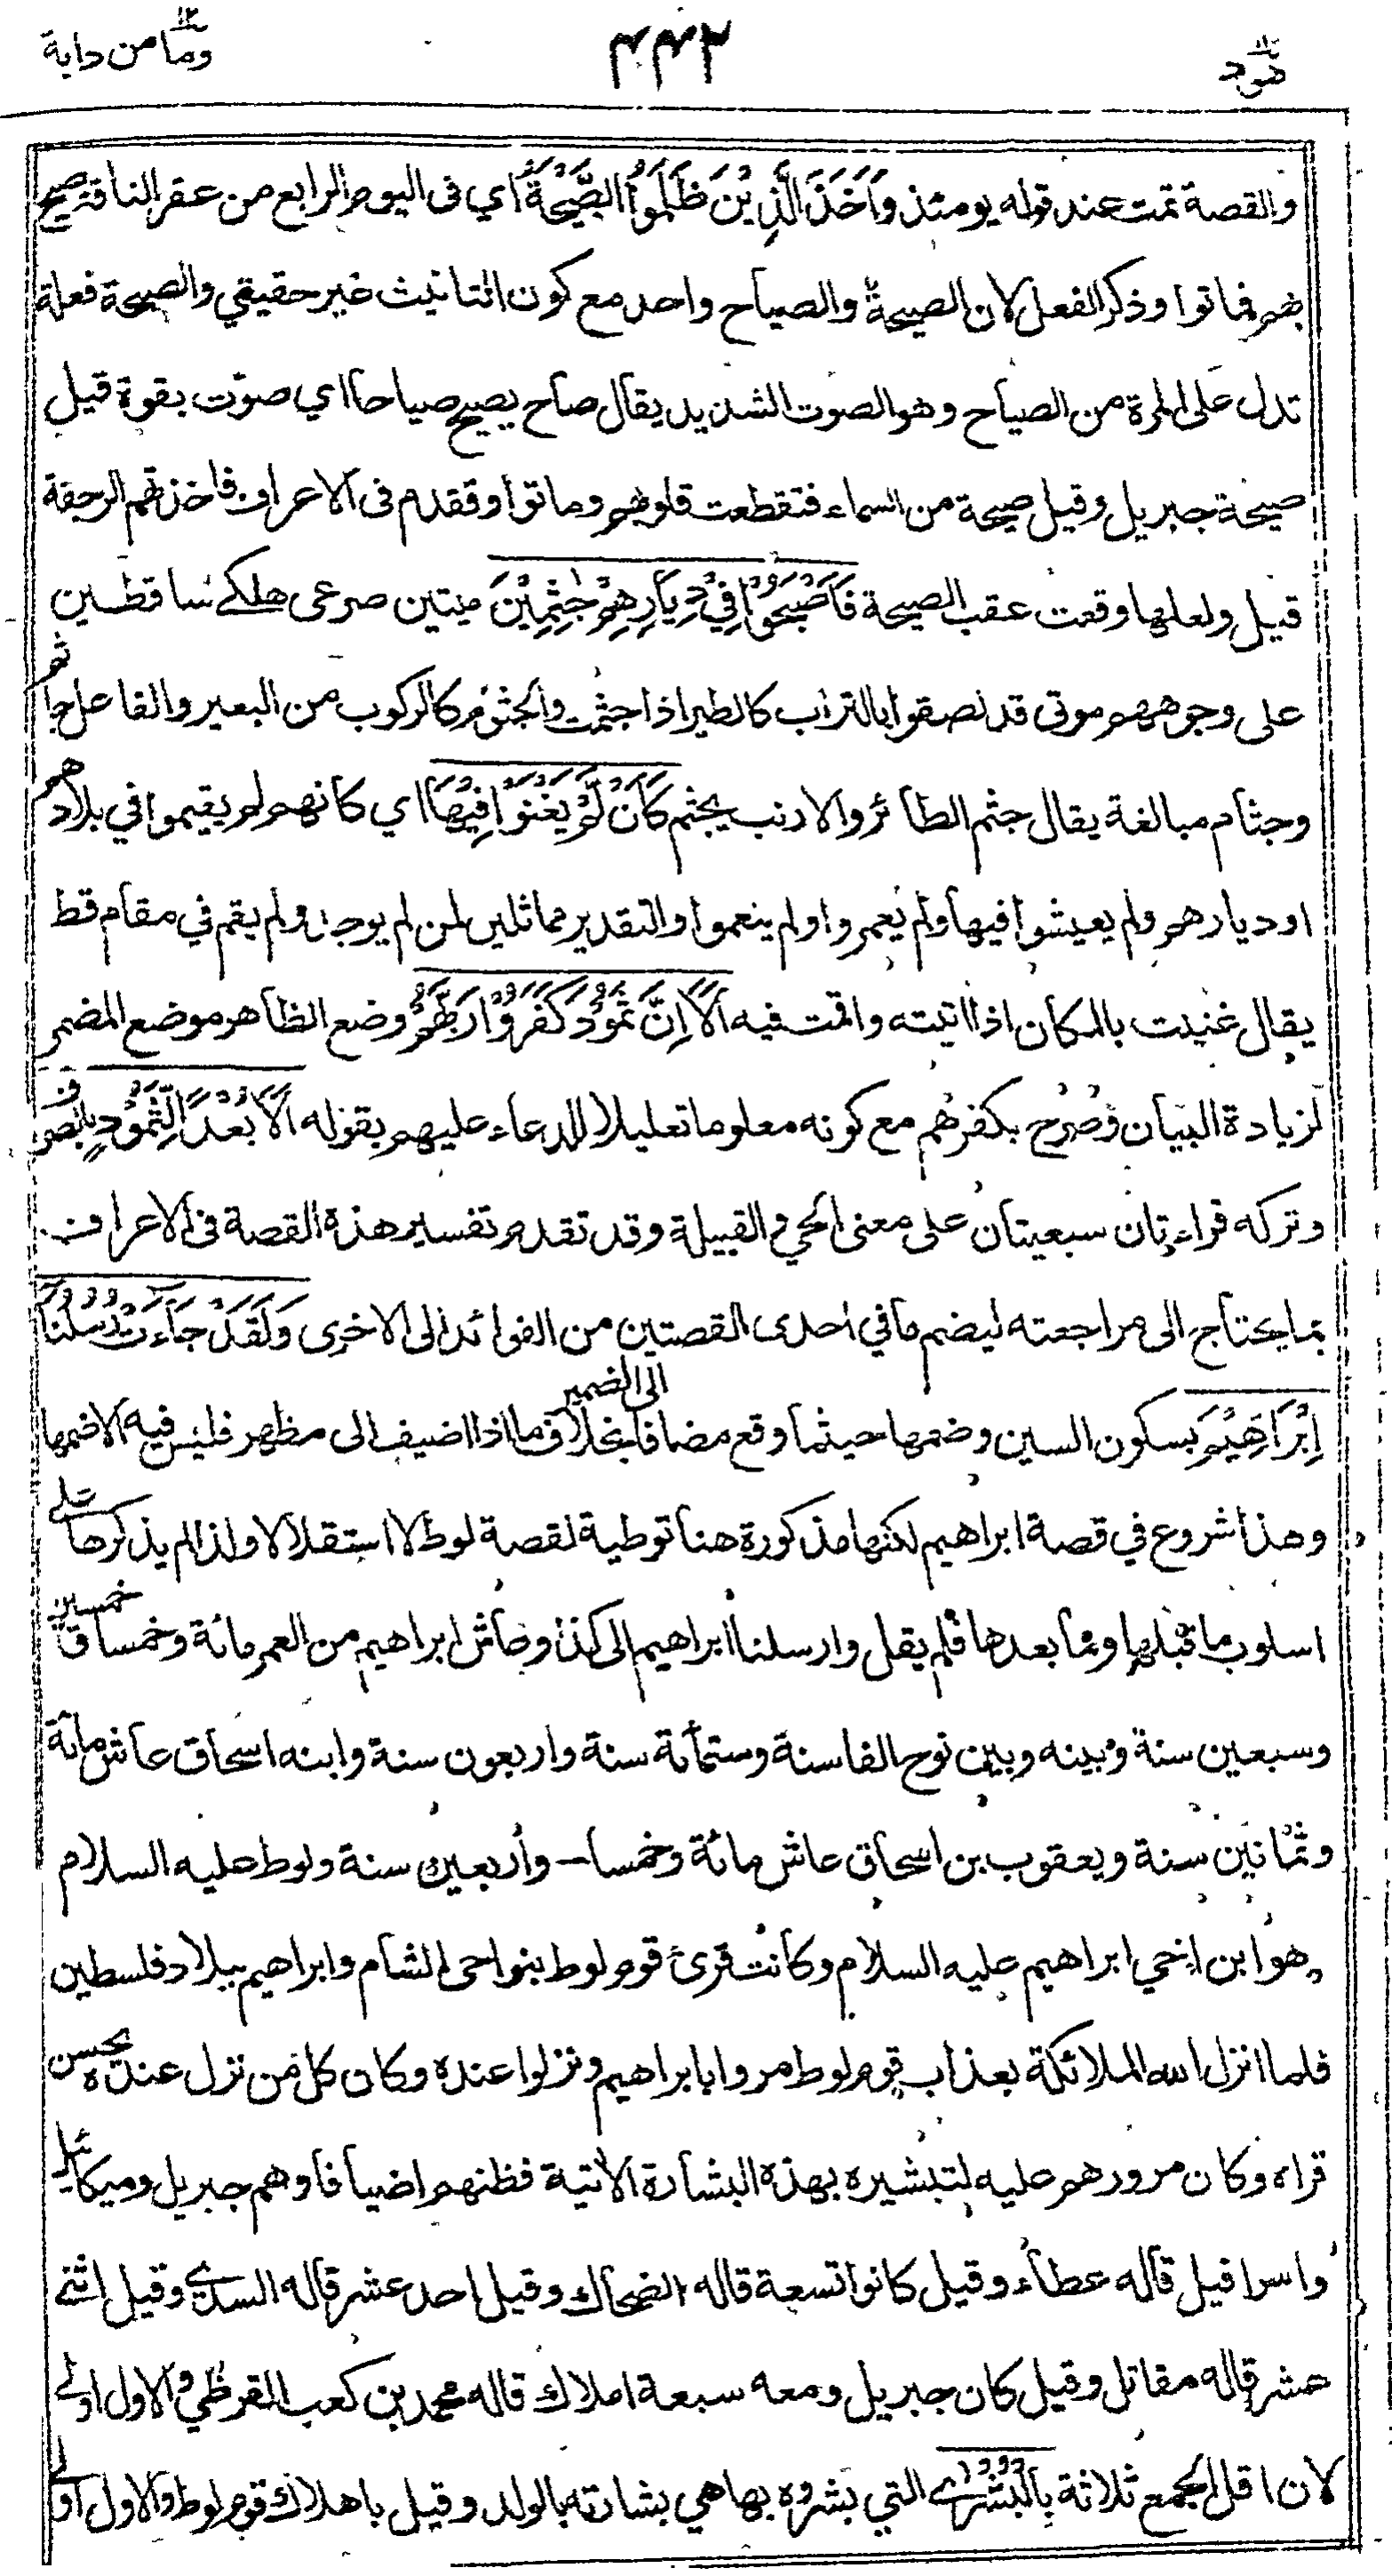 هود
وما من دابة
والقصة تمت عند قوله يومئذ وَاَخَذَ الَّذِيْنَ ظَلَمُوا الصَّيْحَةُ اي في اليوم الرابع من عقر الناقة صيح
بهم فماتوا وذكر الفعل لان الصيحة والصياح واحد مع كون التانيث غير حقيقي والصيحة فعلة
تدل على المرة من الصياح وهو الصوت الشديد يقال صاح يصيح صياحا اي صوّت بقوة قيل
صيحة جبريل وقيل صيحة من السماء فتقطعت قلوبهم وماتوا وقدم في الاعراف فاخذتهم الرجفة
قيل ولعلها وقعت عقب الصيحة فَاَصْبَحُوْا فِيْ دِيَارِهِمْ جٰثِمِيْنَ ميتين صرعى هلكى ساقطين
على وجوههم موتى قد لصقوا بالتراب كالطير اذا جثمت والجثوم كالركوب من البعير والفاعل جاثم
وجثام مبالغة يقال جثم الطائر والارنب يجثم كَاَنْ لَّمْ يَغْنَوْا فِيْهَا اي كانهم لم يقيموا في بلادهم
او ديارهم ولم يعيشوا فيها ولم يعمروا ولم ينعموا والتقدير مماثلين لمن لم يوجد ولم يقم في مقام قط
يقال غنيت بالمكان اذا اتيته واقمت فيه اَلَا اِنَّ ثَمُوْدَ كَفَرُوْا رَبَّهُمْ وضع الظاهر موضع المضمر
لزيادة البيان وصرح بكفرهم مع كونه معلوما تعليلا للدعاء عليهم بقوله اَلَا بُعْدًا لِّثَمُوْدَ بالصرف
وتركه قراءتان سبعيتان على معنى الحي والقبيلة وقد تقدم تفسير هذه القصة في الاعراف
بما يحتاج الى مراجعته ليضم ما في احدى القصتين من الفوائد الى الاخرى وَلَقَدْ جَاءَتْ رُسُلُنَا
اِبْرَاهِيْمَ بسكون السين وضمها حيثما وقع مضافا الى الضمير بخلاف ما اذا اضيف الى مظهر فليس فيه الا ضمها
وهذا شروع في قصة ابراهيم لكنها مذكورة هنا توطية لقصة لوط لا استقلالا ولذا لم يذكرها على
اسلوب ما قبلها وما بعدها فلم يقل وارسلنا ابراهيم الى كذا وعاش ابراهيم من العمر مائة وخمسا
وسبعين سنة وبينه وبين نوح الفا سنة وستمائة سنة واربعون سنة وابنه اسحاق عاش مائة
وثمانين سنة ويعقوب بن اسحاق عاش مائة وخمسا واربعين سنة ولوط عليه السلام
هو ابن اخي ابراهيم عليه السلام وكانت قرى قوم لوط بنواحي الشام وابراهيم ببلاد فلسطين
فلما انزل الله الملائكة بعذاب قوم لوط مروا بابراهيم ونزلوا عنده وكان كل من نزل عنده يحسن
قراه وكان مرورهم عليه لتبشيره بهذه البشارة الاتية فظنهم اضيافا وهم جبريل وميكائيل
واسرافيل قاله عطاء وقيل كانوا تسعة قاله الضحاك وقيل احد عشر قاله السدي وقيل اثني
عشر قاله مقاتل وقيل كان جبريل ومعه سبعة املاك قاله محمد بن كعب القرظي والاول اولى
لان اقل الجمع ثلاثة بِالْبُشْرٰى التي بشروه بها هي بشارته بالولد وقيل باهلاك قوم لوط والاول اولى